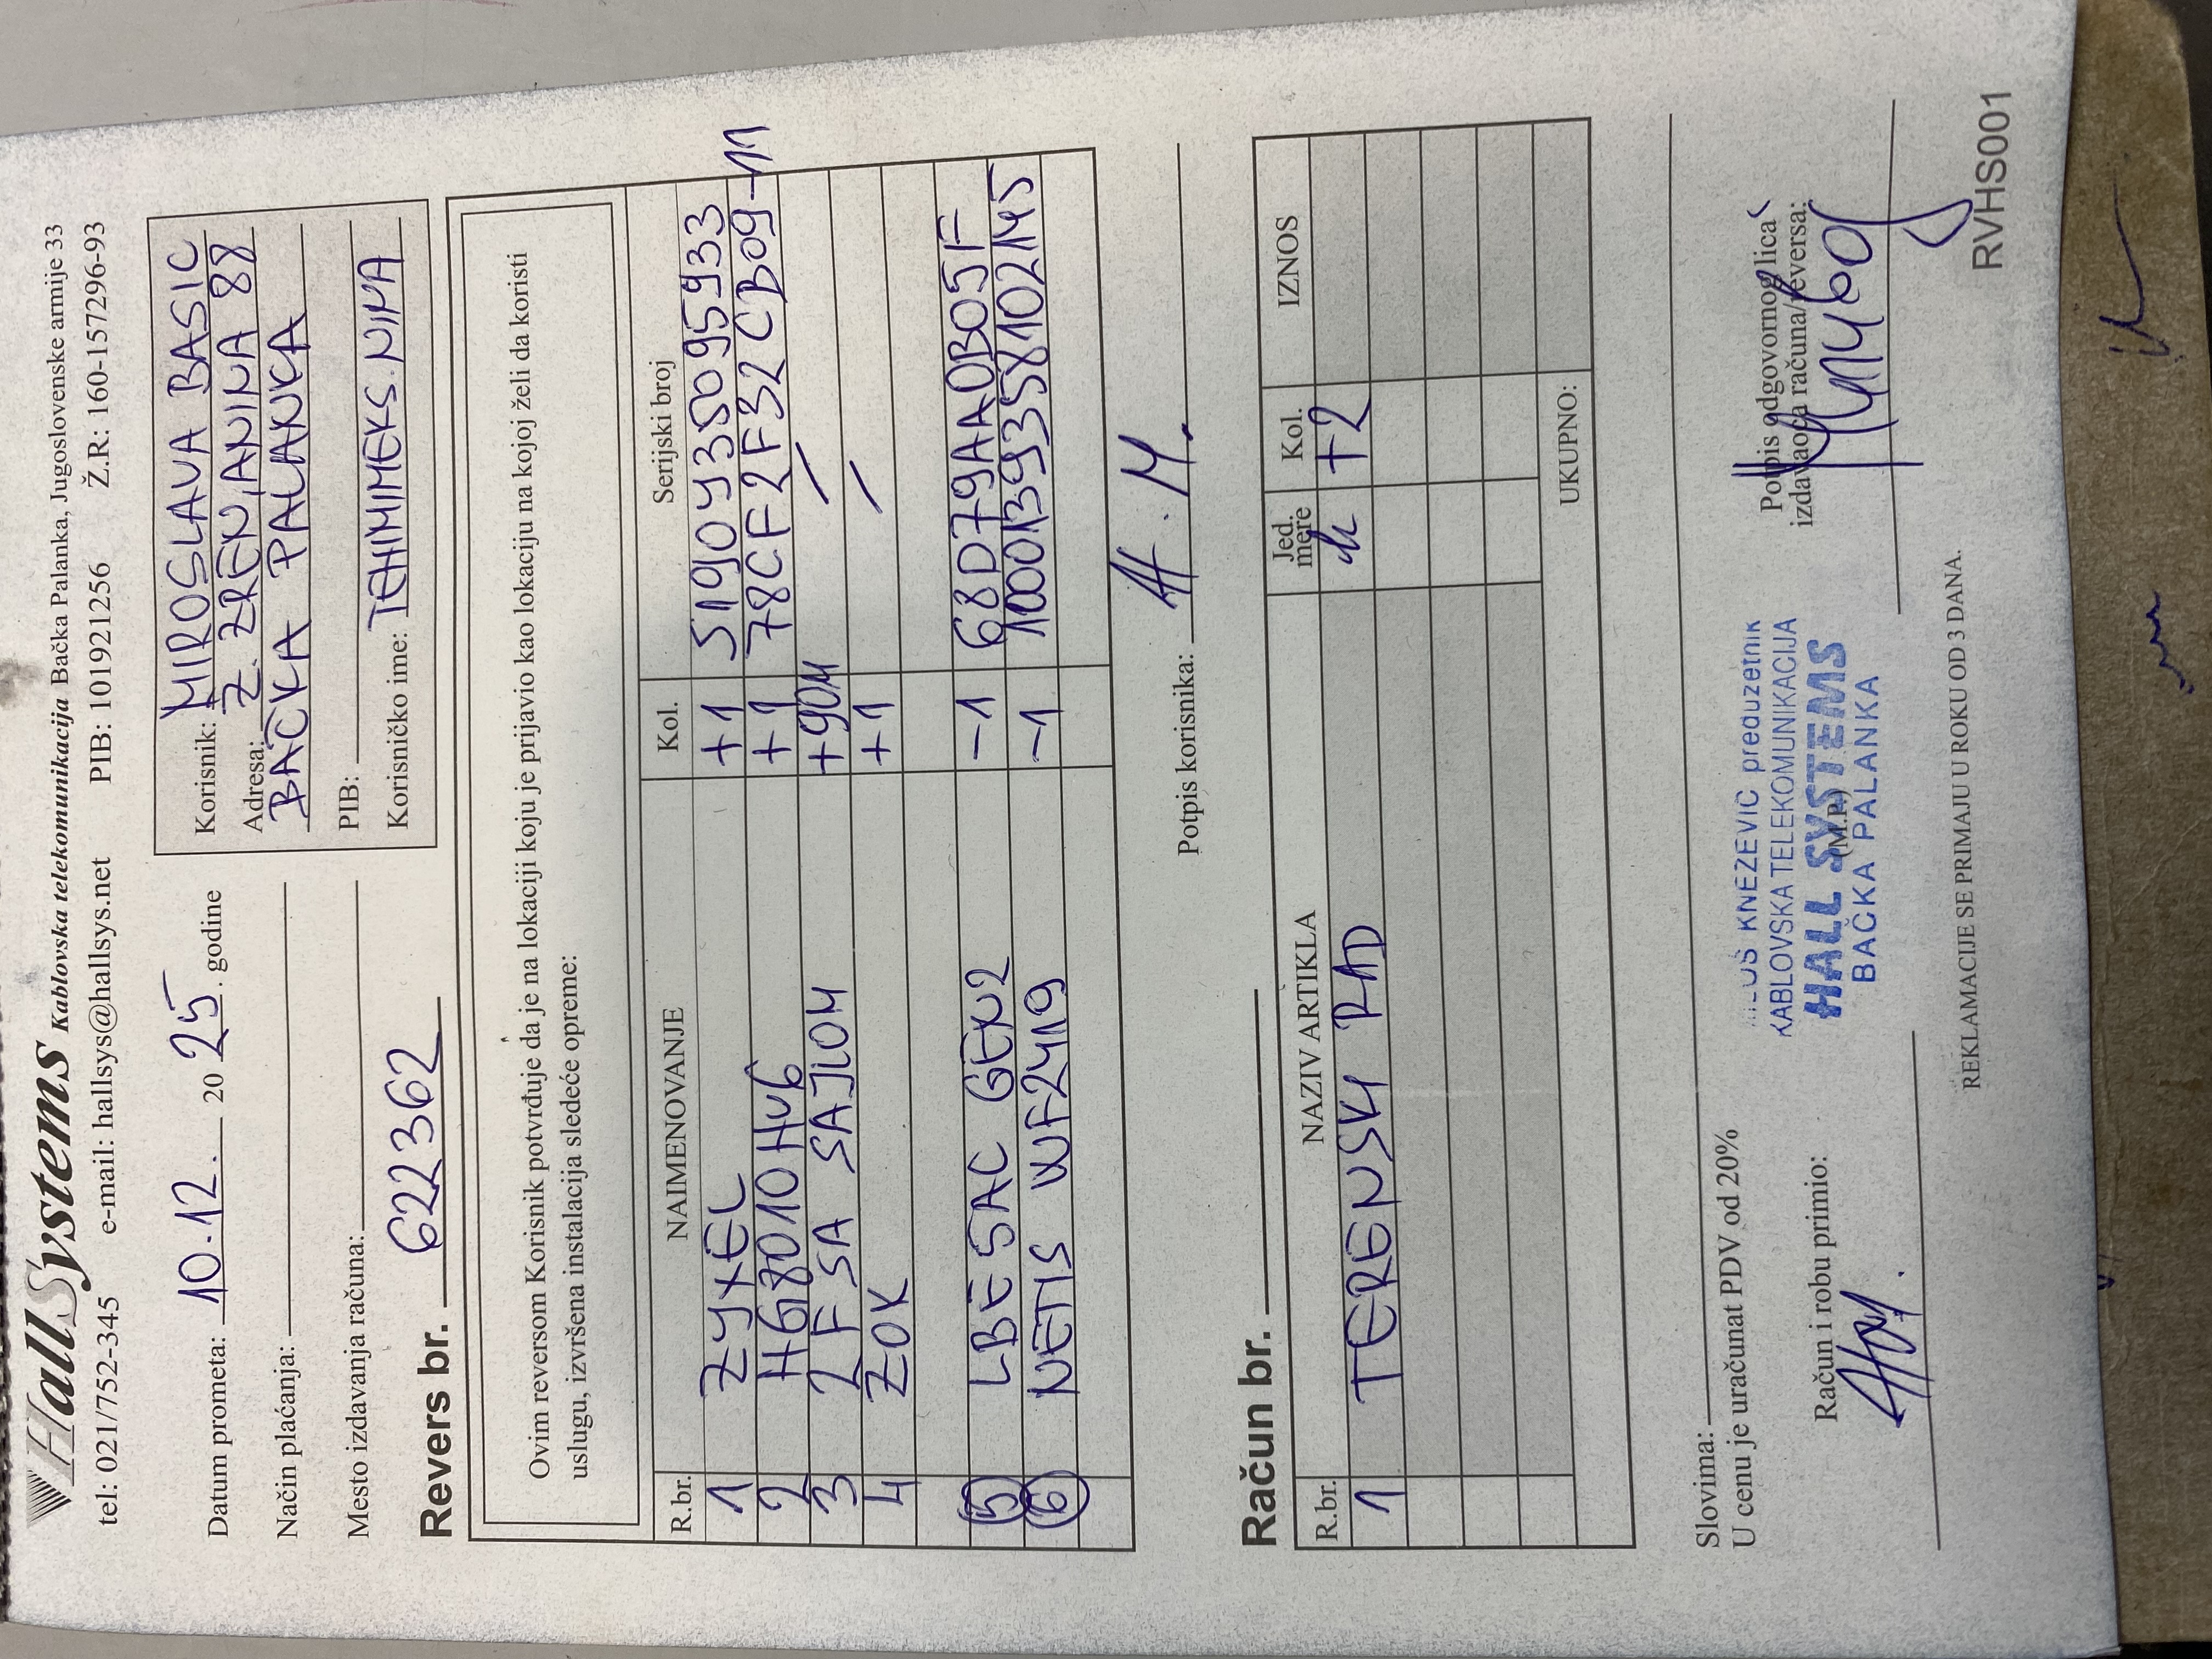 HallSystems Kablovska telekomunikacija Bačka Palanka, Jugoslovenske armije 33
tel: 021/752-345 e-mail: hallsys@hallsys.net PIB: 101921256 Ž.R: 160-157296-93
Datum prometa: 10.12. 2025. godine
Način plaćanja:
Mesto izdavanja računa:
Korisnik: MIROSLAVA BASIC
Adresa: Z. ZRENJANINA 88
BAČKA PALANKA
PIB:
Korisničko ime: TEHIMIMEKS.NINA
Revers br. 622362
Ovim reversom Korisnik potvrđuje da je na lokaciji koju je prijavio kao lokaciju na kojoj želi da koristi
uslugu, izvršena instalacija sledeće opreme:
R.br. NAIMENOVANJE Kol. Serijski broj
1 ZYXEL +1 S190Y350095933
2 HG8010HV6 +1 78CF2F32CB09-11
3 2F SA SAJLOM +90M /
4 ZOK +1 /
5 LBE 5AC GEN2 -1 68D79AA0B05F
6 NETIS WF2419 -1 1000139358102145
Potpis korisnika:
Račun br.
R.br. NAZIV ARTIKLA Jed. mere Kol. IZNOS
1 TERENSKI RAD h +2
UKUPNO:
Slovima:
U cenu je uračunat PDV od 20%
Račun i robu primio:
KNEZEVIC preduzetnik
KABLOVSKA TELEKOMUNIKACIJA
HALL SYSTEMS
(M.P.)
BAČKA PALANKA
Potpis odgovornog lica
izdavaoca računa/reversa:
REKLAMACIJE SE PRIMAJU U ROKU OD 3 DANA.
RVHS001